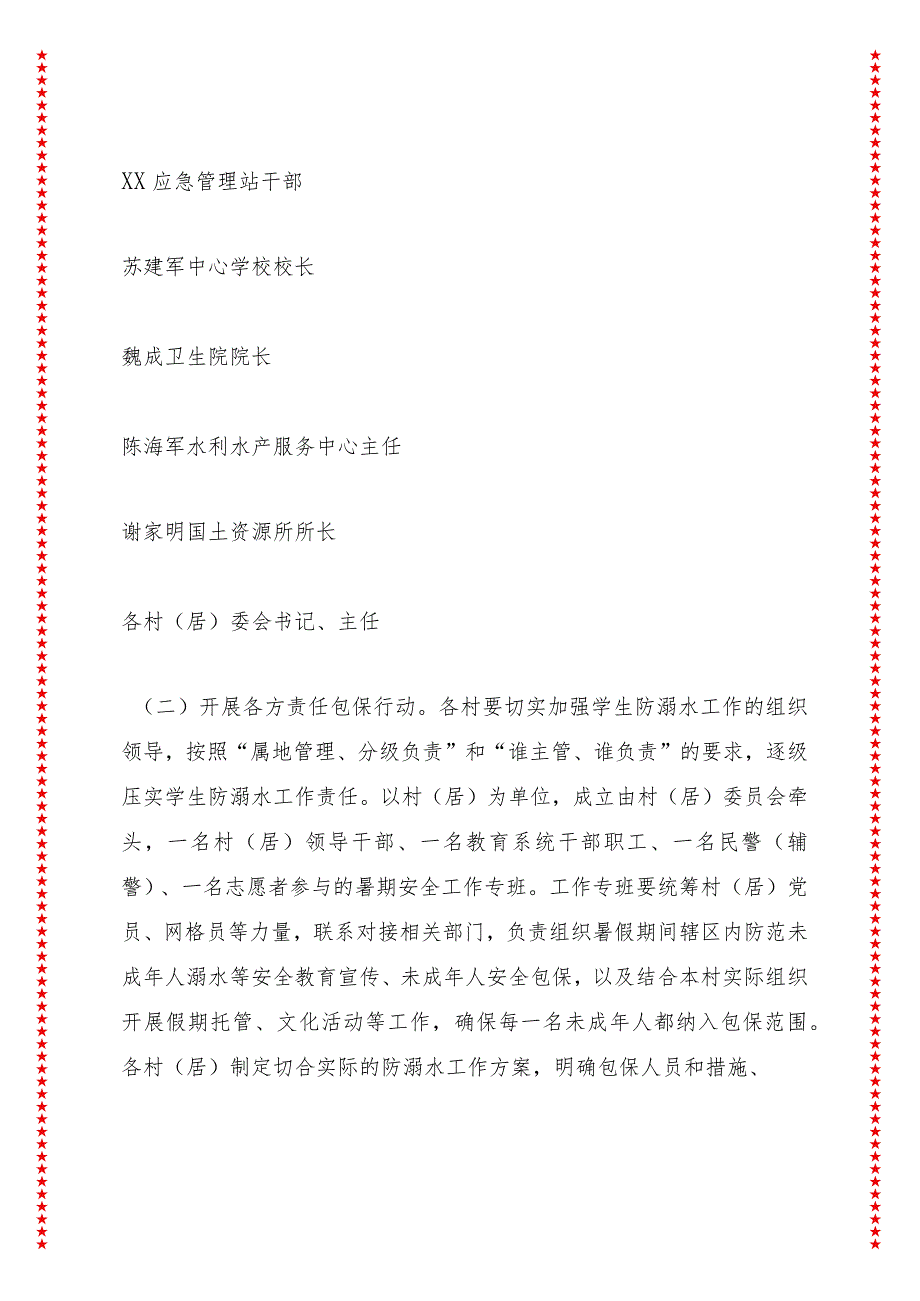 XX应急管理站干部
苏建军中心学校校长
魏成卫生院院长
陈海军水利水产服务中心主任
谢家明国土资源所所长
各村（居）委会书记、主任
（二）开展各方责任包保行动。各村要切实加强学生防溺水工作的组织
领导，按照“属地管理、分级负责”和“谁主管、谁负责”的要求，逐级
压实学生防溺水工作责任。以村（居）为单位，成立由村（居）委员会牵
头，一名村（居）领导干部、一名教育系统干部职工、一名民警（辅
警）、一名志愿者参与的暑期安全工作专班。工作专班要统筹村（居）党
员、网格员等力量，联系对接相关部门，负责组织暑假期间辖区内防范未
成年人溺水等安全教育宣传、未成年人安全包保，以及结合本村实际组织
开展假期托管、文化活动等工作，确保每一名未成年人都纳入包保范围。
各村（居）制定切合实际的防溺水工作方案，明确包保人员和措施、